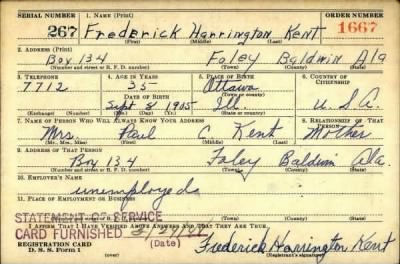 SERIAL NUMBER 1. NAME (Print) ORDER NUMBER
267 Frederick Harrington Kent 1667
(First) (Middle) (Last)
2. ADDRESS (Print)
Box 134 Foley Baldwin Ala
(Number and street or R. F. D. number) (Town) (County) (State)
3. TELEPHONE 4. AGE IN YEARS 5. PLACE OF BIRTH 6. COUNTRY OF CITIZENSHIP
7712 35 Ottawa
DATE OF BIRTH (Town or county)
Sept 8 1905 Ill. U.S.A.
(Exchange) (Number) (Mo.) (Day) (Yr.) (State or country)
7. NAME OF PERSON WHO WILL ALWAYS KNOW YOUR ADDRESS 8. RELATIONSHIP OF THAT PERSON
Mrs. Paul C. Kent Mother
(Mr., Mrs., Miss) (First) (Middle) (Last)
9. ADDRESS OF THAT PERSON
Box 134 Foley Baldwin Ala.
(Number and street or R. F. D. number) (Town) (County) (State)
10. EMPLOYER'S NAME
unemployed
11. PLACE OF EMPLOYMENT OR BUSINESS
STATEMENT OF SERVICE
(Number and street or R. F. D. number) (Town) (County) (State)
CARD FURNISHED
I AFFIRM THAT I HAVE VERIFIED ABOVE ANSWERS AND THAT THEY ARE TRUE.
REGISTRATION CARD (Date) Frederick Harrington Kent
D. S. S. Form 1 (over) (Registrant's signature)